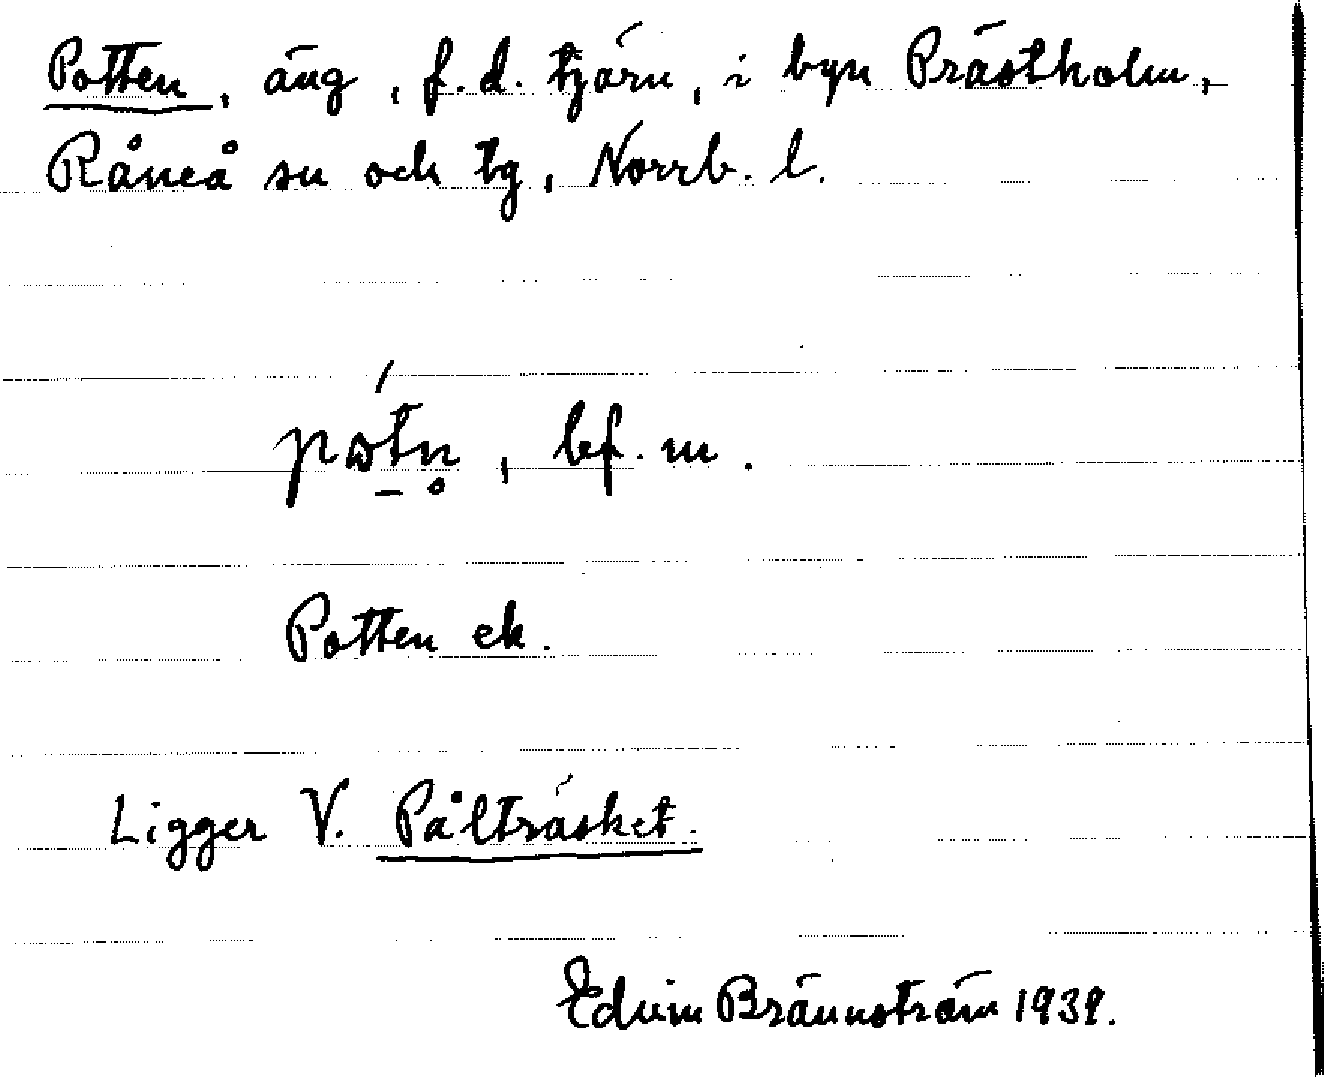 Potten, äng, f.d. tjärn, i byn Prästholm,
Råneå sn och tg, Norrb. l.
pɷ́tn̥, bf. m.
Potten ek.
Ligger V. Pålträsket.
Edvin Brännström 1939.